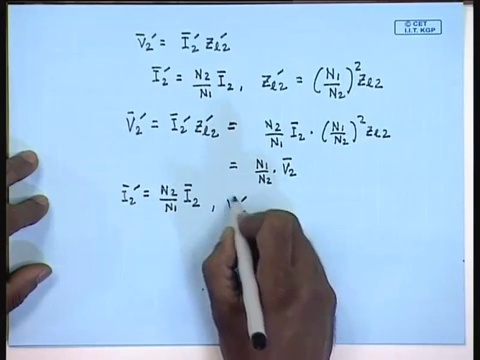 © CET
I.I.T. KGP
V̄₂′ = Ī₂′ Zℓ₂′
Ī₂′ = N₂/N₁ Ī₂ , Zℓ₂′ = (N₁/N₂)² Zℓ₂
V̄₂′ = Ī₂′ Zℓ₂′ = N₂/N₁ Ī₂ · (N₁/N₂)² Zℓ₂
= N₁/N₂ · V̄₂
Ī₂′ = N₂/N₁ Ī₂ ,